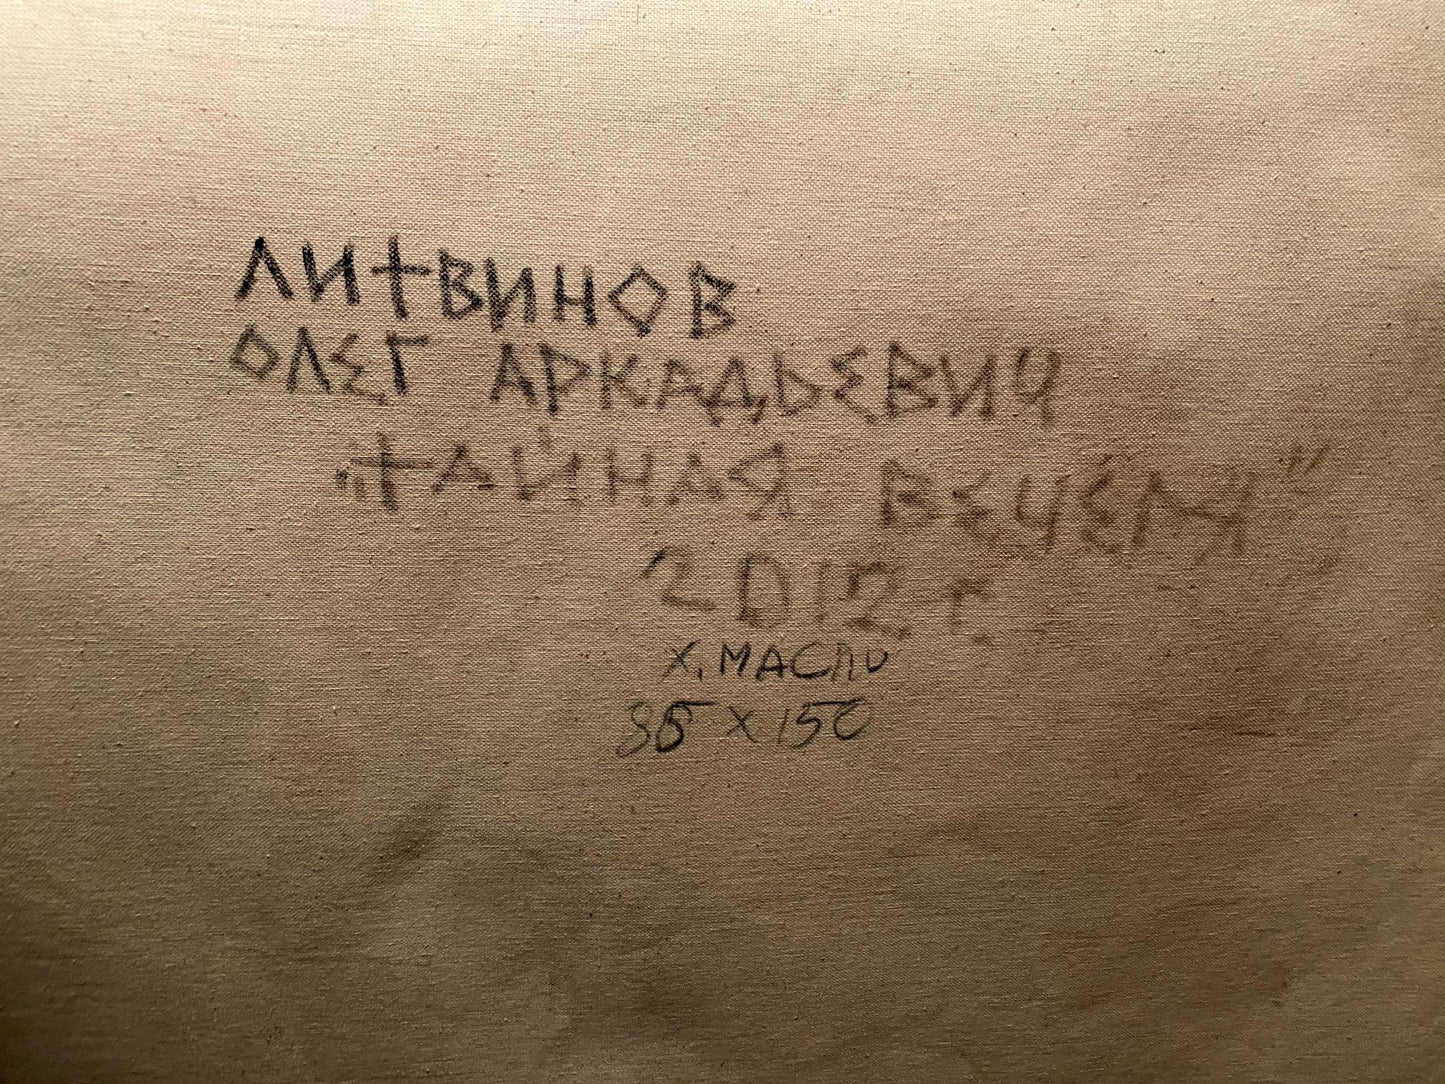 ЛИТВИНОВ
ОЛЕГ АРКАДЬЕВИЧ
„ТАЙНАЯ ВЕЧЕРЯ"
2012 г.
Х. МАСЛО
85 х 150